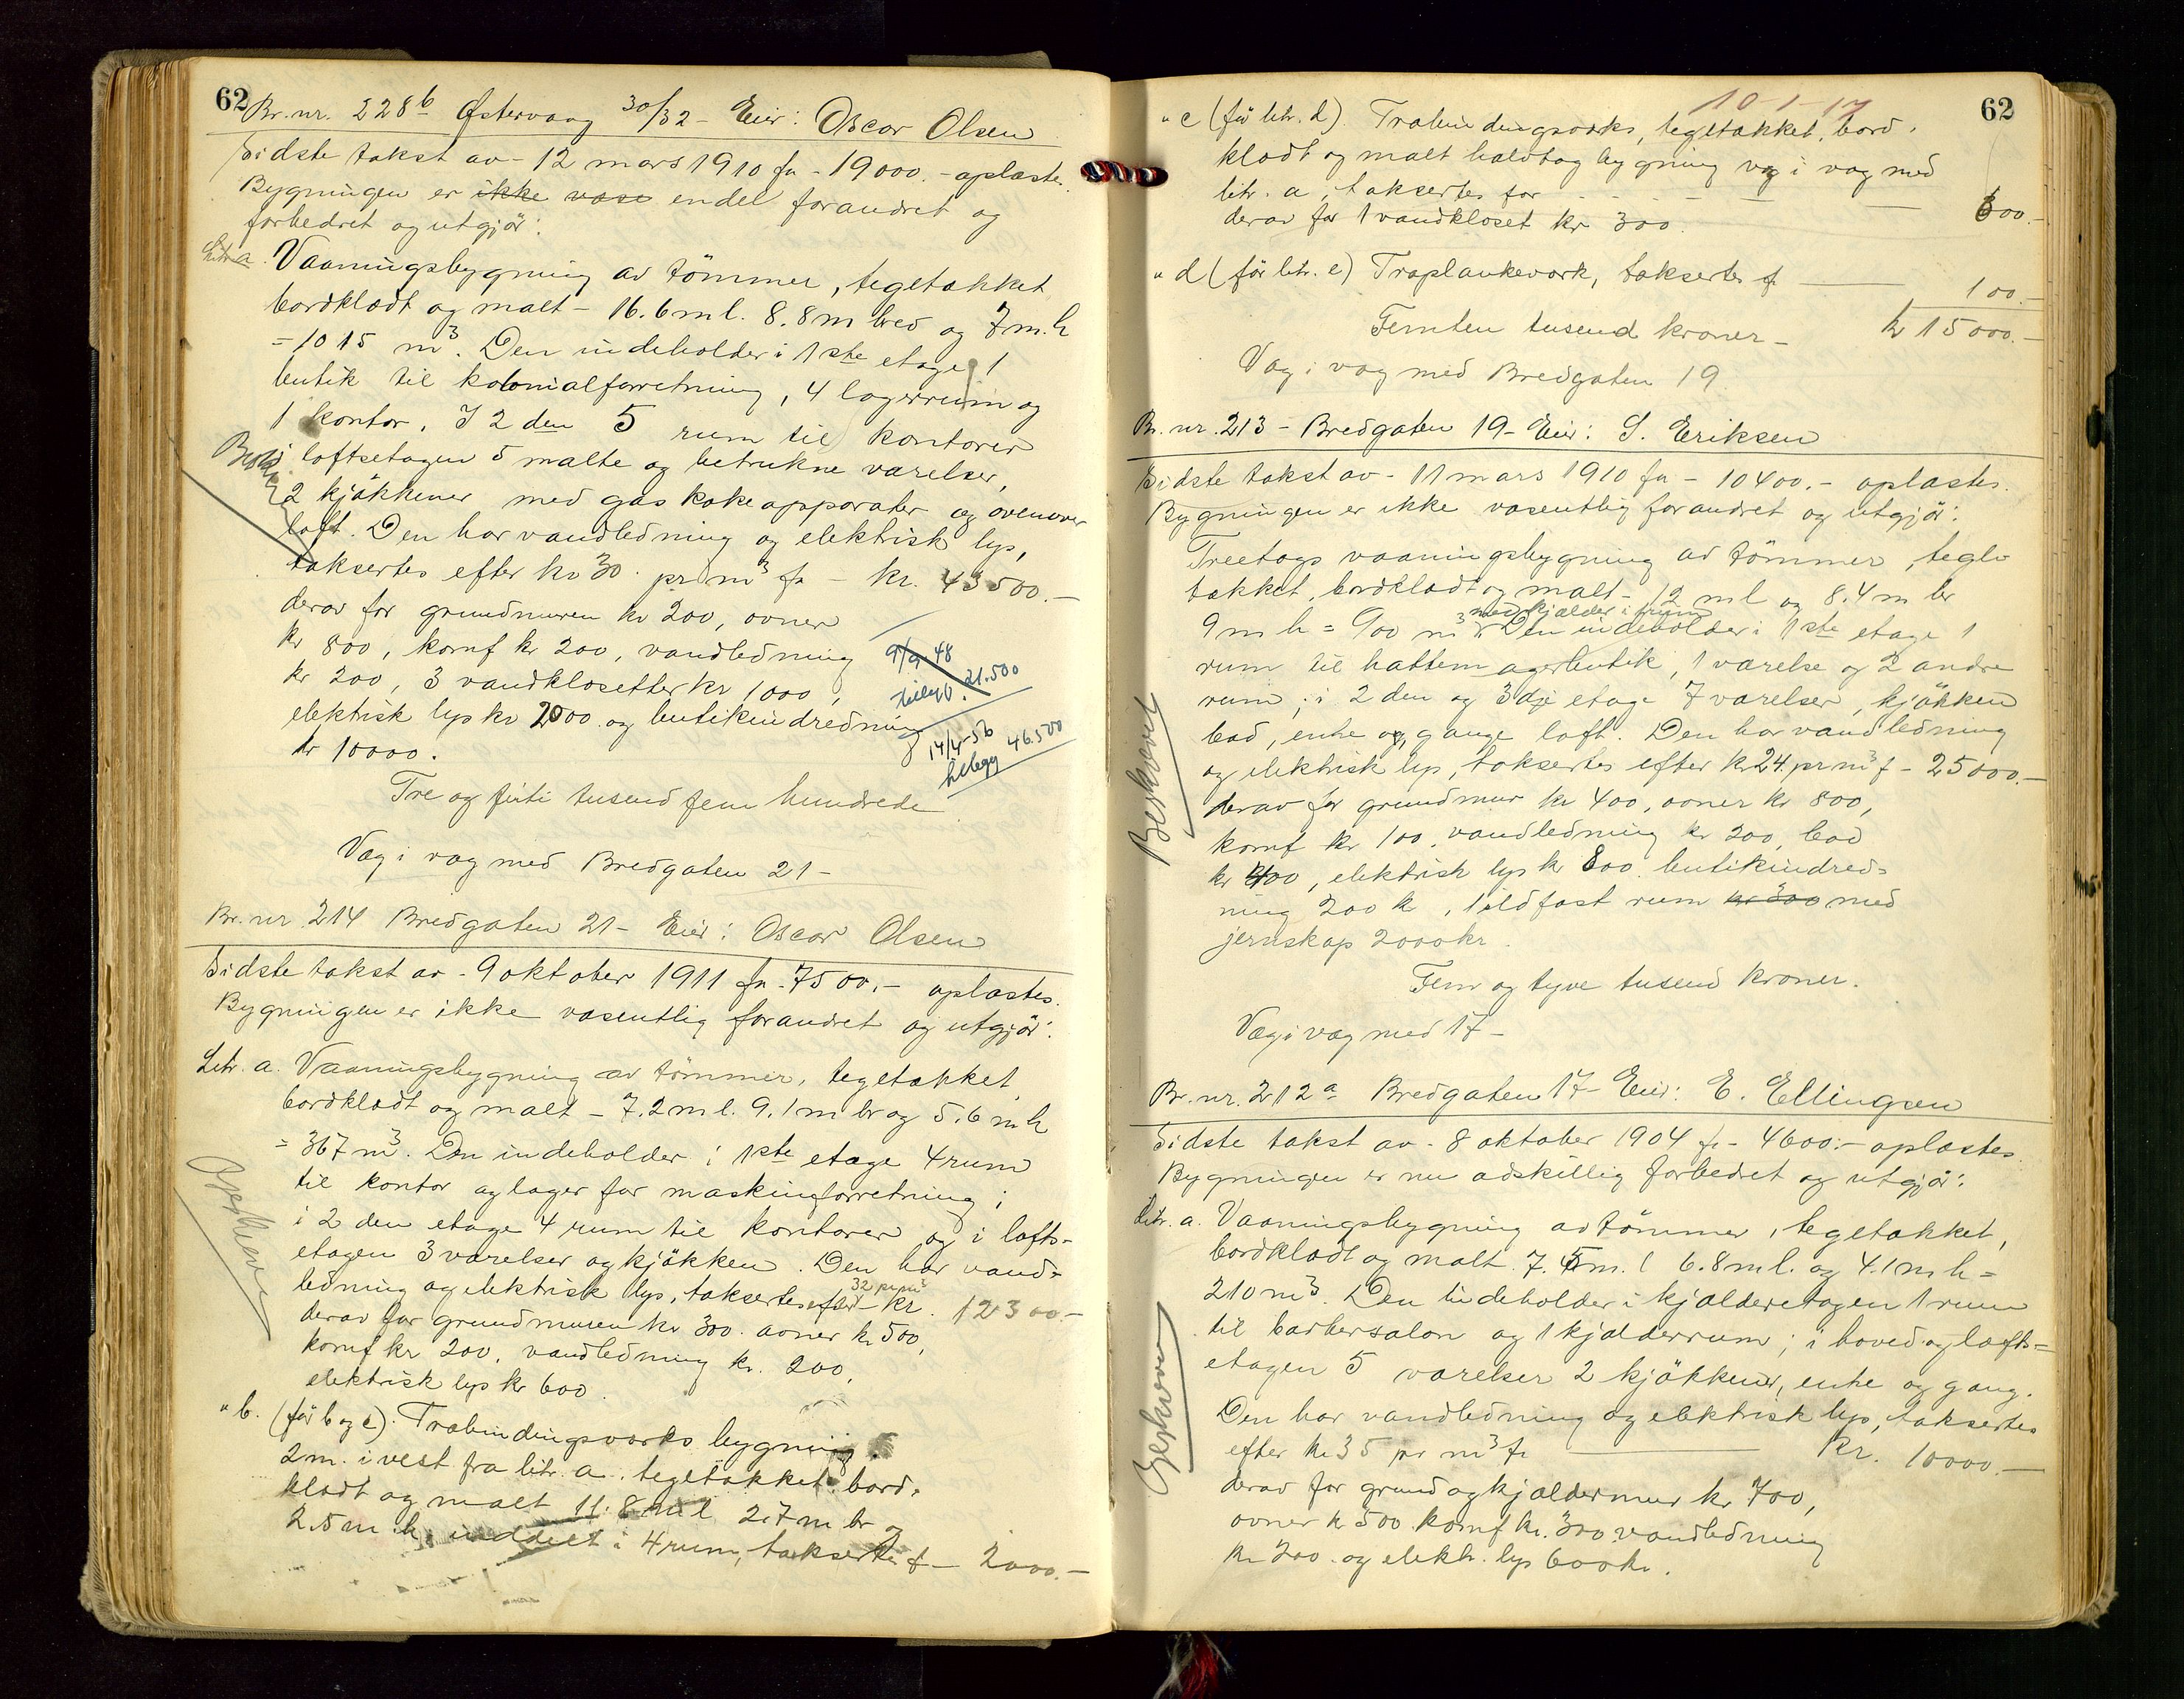 62
Br. nr. 228b Østervaag 30/32 - Eier: Oscar Olsen
Sidste takst av - 12 mars 1910 fr - 19000.- oplæstes.
Bygningen er ikke væse endel forandret og
forbedret og utgjör:
Litr. a. Vaaningsbygning av tömmer, tegeltækket
bordklædt og malt - 16.6 m l. 8.8 m bred og 7 m. h
= 1015 m3. Den indeholder i 1ste etage 1
butik til kolonialforretning, 4 lagerrum og
1 kontor. I 2den 5 rum til kontorer
i loftsetagen 5 malte og betrukne værelser,
2 kjökkener med gas kokeapparater og ovenover
loft. Den har vandledning og elektrisk lys,
taksertes efter kr 30. pr m3 fr - kr. 43500.-
derav for grundmuren kr 200, ovner
kr 800, komf kr 200, vandledning
kr 200, 3 vandklosetter kr 1000,
elektrisk lys kr 2000 og butikindredning
kr 10000.
9/9-48
tillegg. 21.500
14/4-56
tillegg 46.500
Tre og firti tusend fem hundrede
Væg i væg med Bredgaten 21 -
Br. nr 214 Bredgaten 21 - Eier: Oscar Olsen
Sidste takst av - 9 oktober 1911 fr. 7500.- oplæstes.
Bygningen er ikke væsentlig forandret og utgjör:
Litr. a. Vaaningsbygning av tömmer, tegeltækket
bordklædt og malt - 7.2 m l. 9.1 m br og 5.6 m h
= 367 m3. Den indeholder i 1ste etage 4 rum
til kontor og lager for maskinforretning;
i 2den etage 4 rum til kontorer og i lofts-
etagen 3 værelser og kjökken. Den har vand-
ledning og elektrisk lys, taksertes efter 32 pr m3 - kr. 12300.-
derav for grundmuren kr 300. ovner kr 500,
komf kr 200, vandledning kr. 200,
elektrisk lys kr 600.
" b. (för b og c). Træbindingsværks bygning
2 m. i vest fra litr. a. tegeltækket bord-
klædt og malt 11.8 m l 2.7 m br og
2.5 m h, inddelt i 4 rum, taksertes f - 2000.-
62
10-1-17
" c (för litr. d). Træbindingsværks, tegeltækket, bord-
klædt og malt halvtag bygning væg i væg med
litr. a, taksertes for - - - - 600.-
derav for 1 vandkloset kr 300.
" d (för litr. e) Træplankeverk, taksertes f. 100.-
Femten tusend kroner - kr 15000.-
Væg i væg med Bredgaten 19.
Br. nr. 213 - Bredgaten 19 - Eier: S. Eriksen
Sidste takst av - 11 mars 1910 fr - 10400.- oplæstes.
Bygningen er ikke væsentlig forandret og utgjör:
Treetages vaaningsbygning av tömmer, tegl-
tækket, bordklædt og malt - 12 m l og 8.4 m br
9 m h = 900 m3 med kjælder i 1 rum. Den indeholder i 1ste etage 1
rum til hattemagerbutik, 1 værelse og 2 andre
rum; i 2den og 3dje etage 7 værelser, kjökken
bad, entre og gange loft. Den har vandledning
og elektrisk lys, taksertes efter kr 24. pr m3 f - 25000.-
derav for grundmur kr 400, ovner kr 800,
komf kr 100, vandledning kr 200, bad
kr 400, elektrisk lys kr 800. butikindred-
ning 200 kr, 1 ildfast rum kr 300 med
jernskap 2000 kr.
Fem og tyve tusend kroner.
Væg i væg med 17 -
Br. nr. 212a Bredgaten 17 - Eier: E. Ellingsen
Sidste takst av - 8 oktober 1904 fr - 4600.- oplæstes.
Bygningen er nu adskillig forbedret og utgjör:
Litr. a. Vaaningsbygning av tömmer, tegeltækket,
bordklædt og malt. 7.5 m. l 6.8 m l. og 4.1 m h =
210 m3. Den indeholder i kjælderetagen 1 rum
til barbersalon og 1 kjælderrum; i hoved og lofts-
etagen 5 værelser 2 kjökkener, entre og gang.
Den har vandledning og elektrisk lys, taksertes
efter kr 35 pr m3 fr kr. 10000.-
derav for grund og kjældermur kr 700,
ovner kr 500 komf kr. 300 vandledning
kr 200. og elektr. lys 600 kr.
Beskrevet